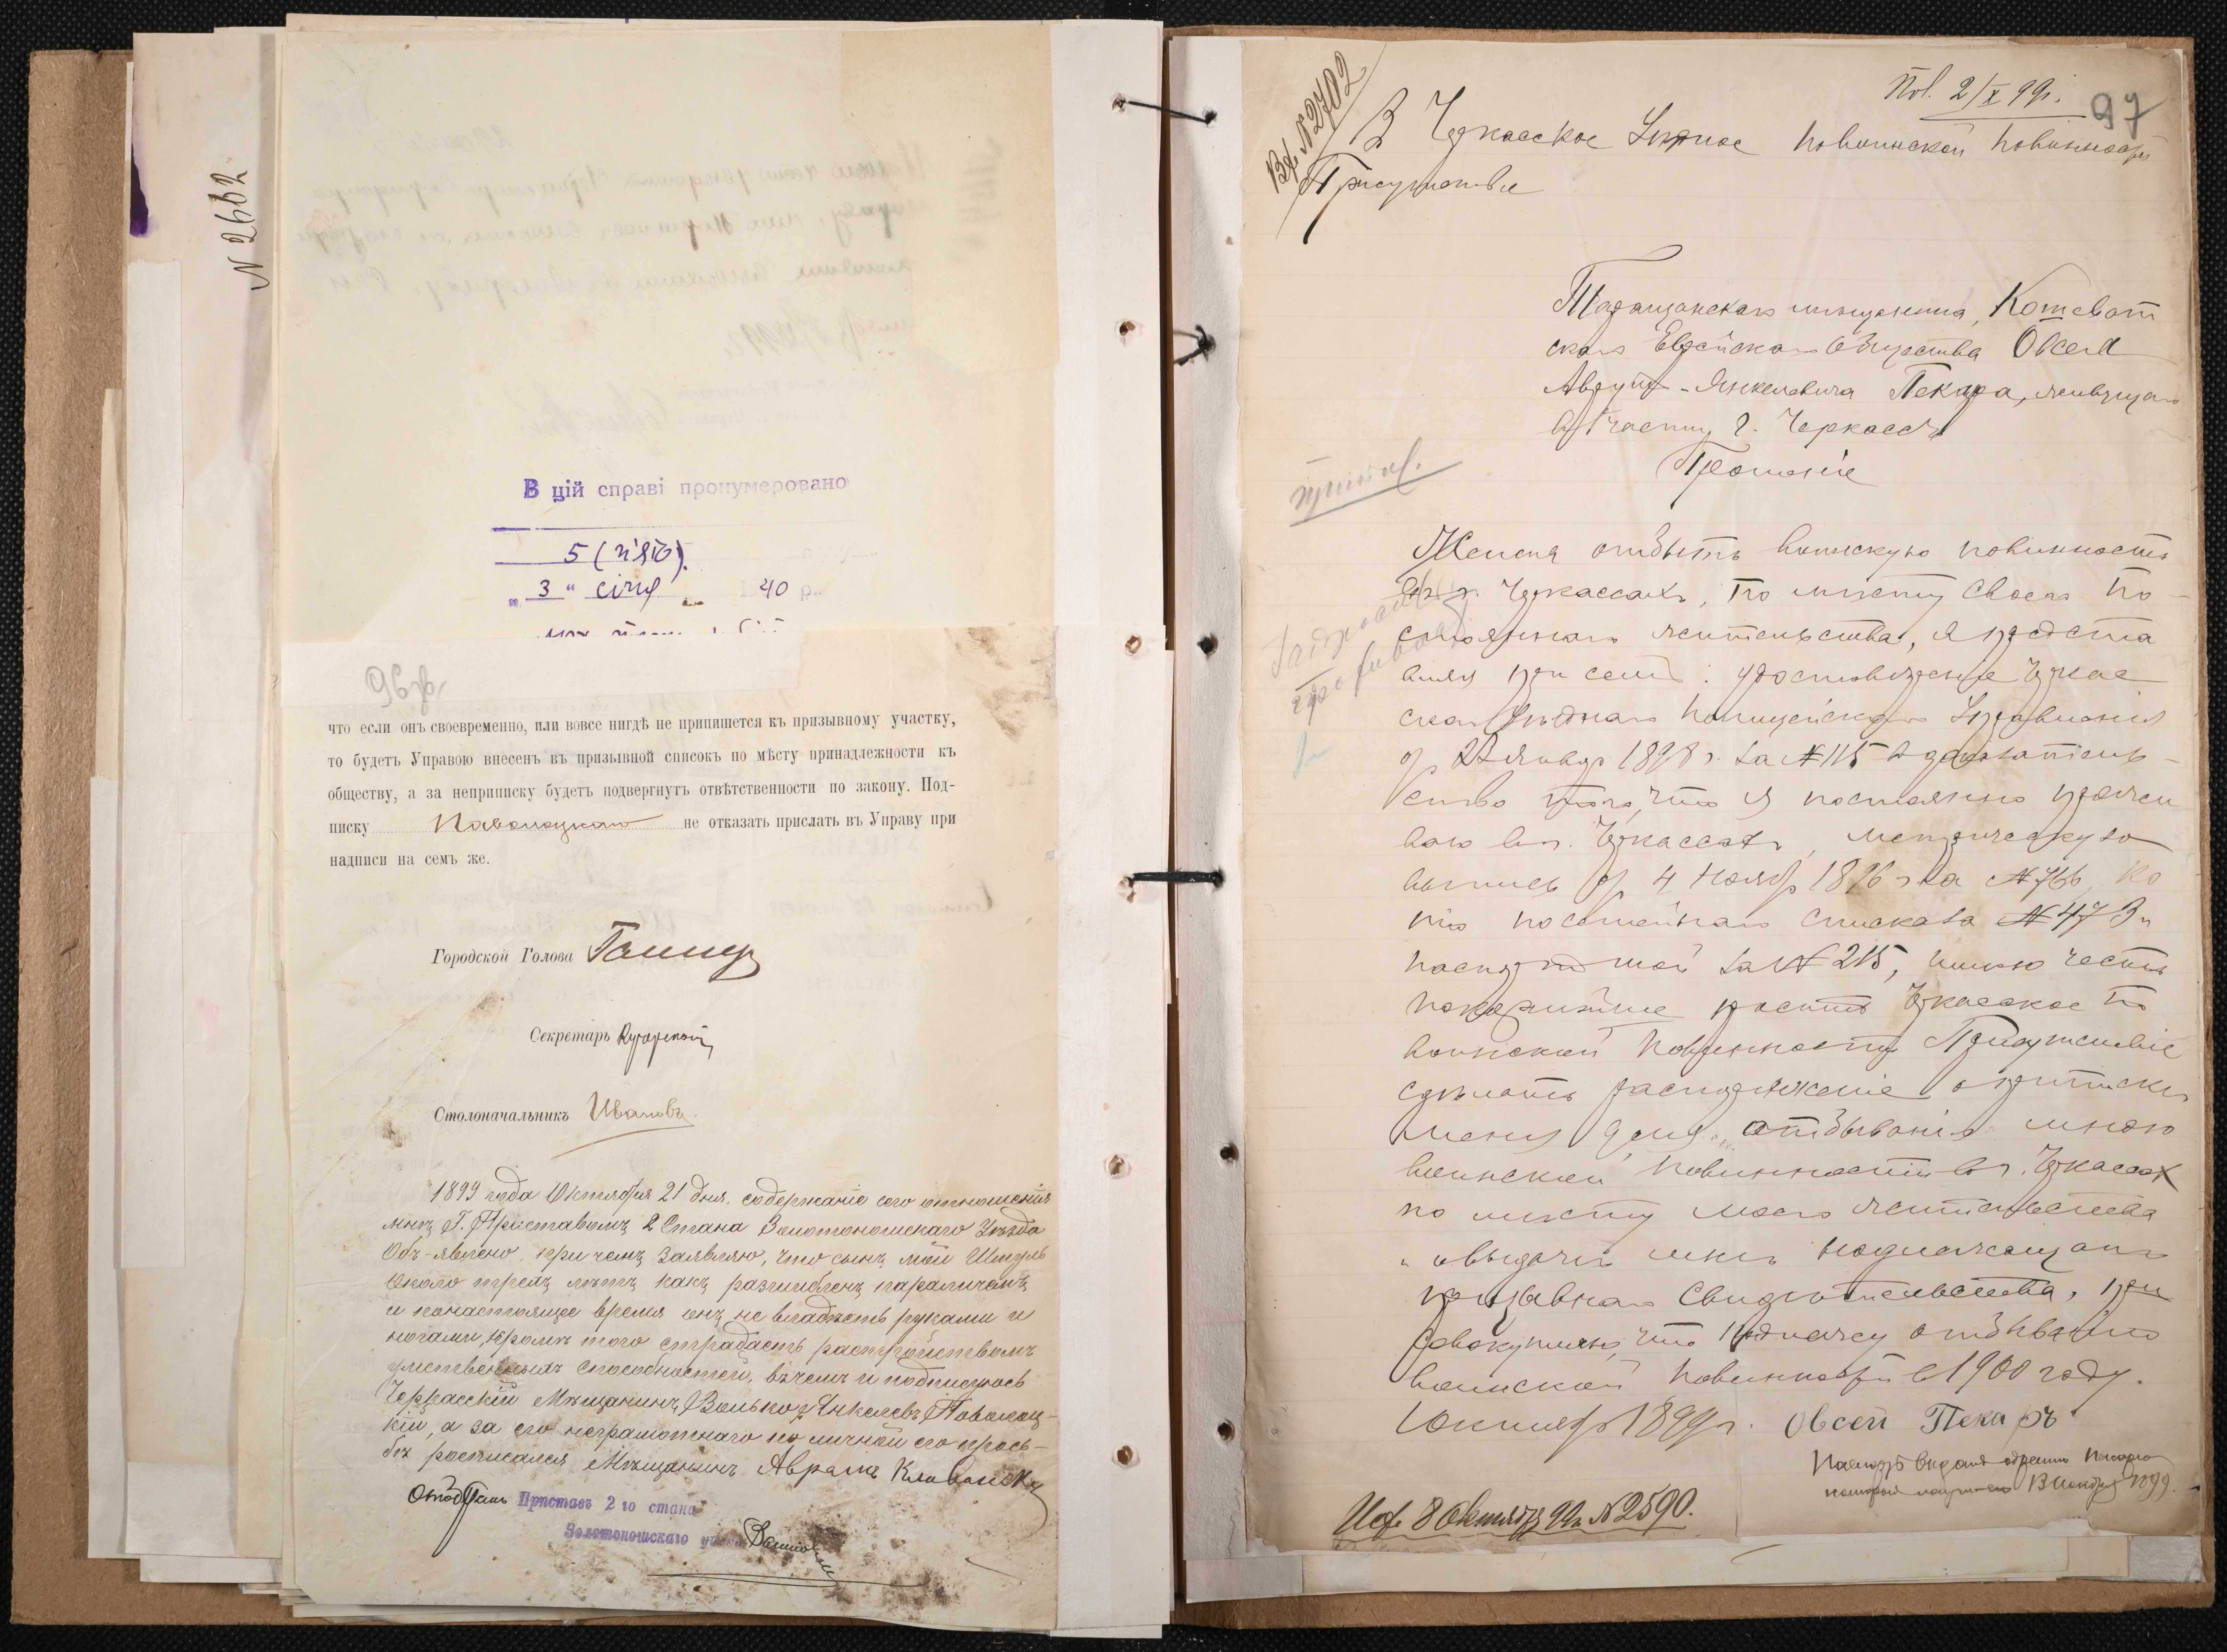 N 2662
В цій справі пронумеровано
5 (п'ять).
„ 3 " січня 40 р.
96 об
что если онъ своевременно, или вовсе нигдѣ не припишется къ призывному участку,
то будетъ Управою внесенъ въ призывной списокъ по мѣсту принадлежности къ
обществу, а за неприписку будетъ подвергнутъ отвѣтственности по закону. Под-
писку Паволоцкаго не отказать прислать въ Управу при
надписи на семъ же.
Городской Голова
Секретарь
Столоначальникъ Ивановъ.
1899 года Октября 21 дня, содержаніе сего отношенія
мнѣ Г. Приставомъ 2 Стана Золотоношскаго Уѣзда
Объ-явлено при чемъ заявляю, что сынъ мой Шмуль
около трехъ лѣтъ какъ разшибленъ параличемъ
и понастоящее время онъ не владѣетъ руками и
ногами, кромѣ того страдаетъ растройствомъ
умственныхъ способностей, въ чемъ и подписуюсь
Черкасскій Мѣщанинъ Волько Янкелевъ Паволоц-
кій, а за его неграмотнаго по личной его прось-
бѣ росписался Мѣщанинъ Аврамъ
Отобралъ Приставъ 2 го стана
Золотоношскаго уѣзда
Вх. N 2702
Пол. 2/X 99 г.
97
В Черкасское Уѣздное по воинской повинности
Присутствіе
Таращанскаго мѣщанина, Кошеват
скаго Еврейскаго Общества Овсея
Авруму-Янкелевича Пекаря, живущаго
в 1 части г. Черкассъ
Прошеніе
Желая отбыть воинскую повинность
в г. Черкассахъ, по мѣсту своего по-
стояннаго жительства, я предста
вляя при семъ: удостовѣреніе Черкас
скаго Уѣзднаго Полицейскаго Управленія
от 22 Январ 1898 г. за № 115 в доказатель-
ство того, что я постоянно прожи
ваю в г. Черкассахъ, метрическую
выпись от 4 Ноябр 1896 г за № 766, ко
пію посемейнаго списка за № 473 и
паспортъ мой за № 215, имѣю честь
покорнѣйше просить Черкасское по
воинской повинности Присутствіе
сдѣлать распоряженіе о припискѣ
меня для отбыванія мною
воинской повинности в г. Черкассах
по мѣсту моего жительства
и о выдачѣ мнѣ надлежащаго
призывнаго свидѣтельства, при
совокупляю, что подлежу отбыванію
воинской повинности в 1900 году.
Октябр 1899 г. Овсей Пекаръ
Паспортъ выданъ обратно Пекарю
который получилъ 13 Ноября 1899
Исх. 8 Октября 99 г. N 2590.